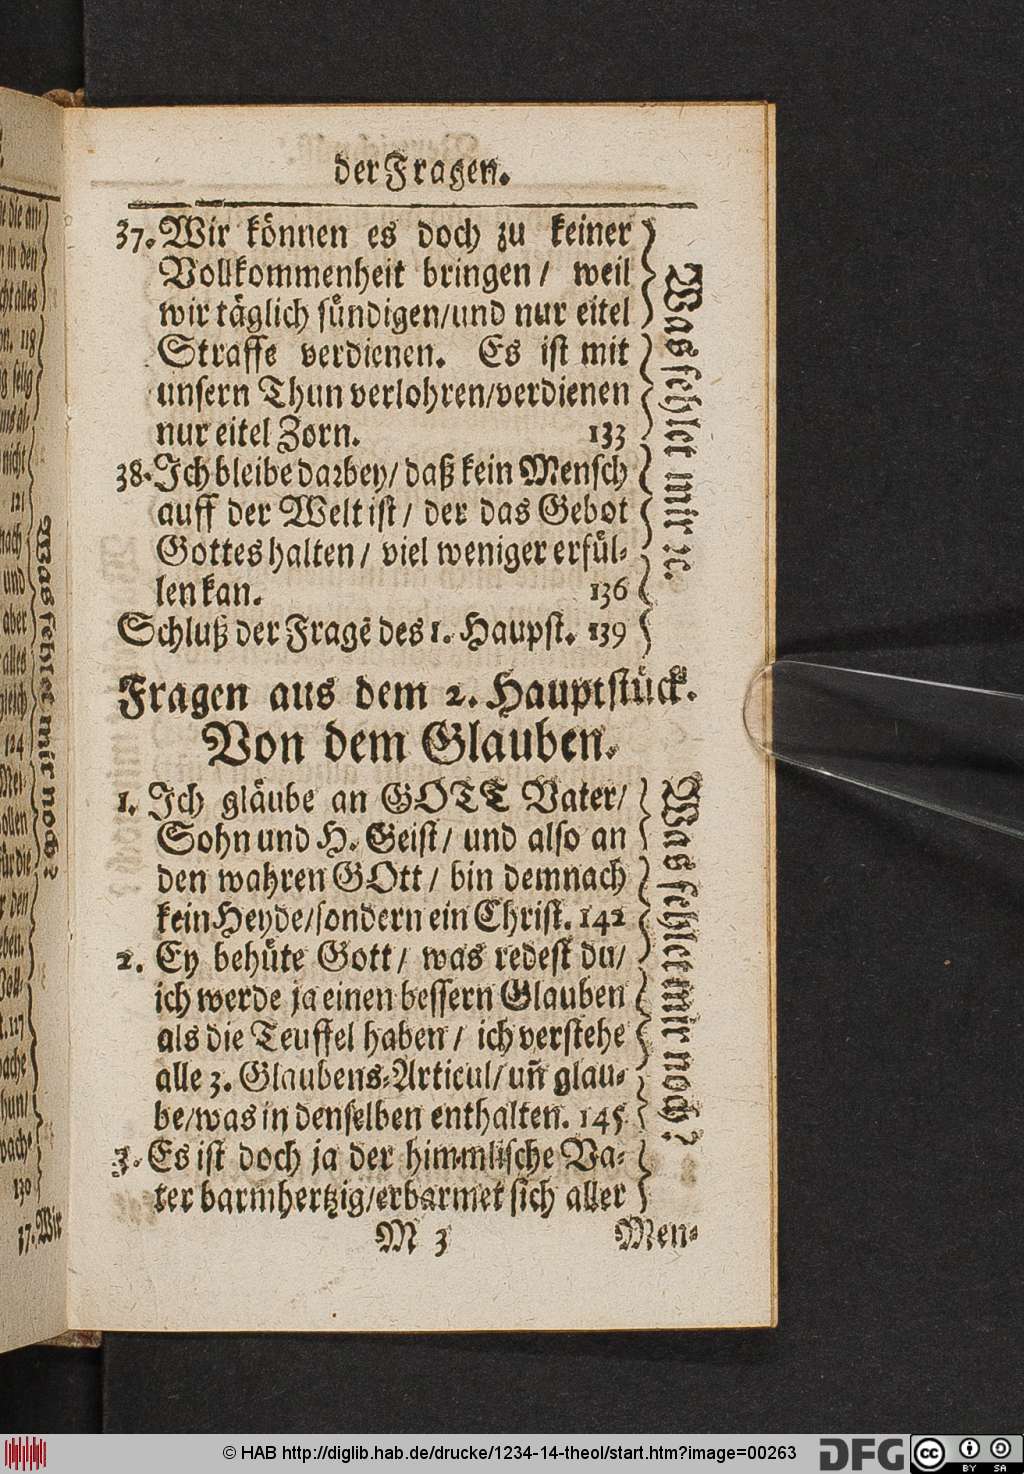 der Fragen.
37. Wir können es doch zu keiner
Vollkommenheit bringen / weil
wir täglich sündigen/und nur eitel
Straffe verdienen. Es ist mit
unsern Thun verlohren/verdienen
nur eitel Zorn. 133
38. Ich bleibe darbey/ daß kein Mensch
auff der Welt ist / der das Gebot
Gottes halten / viel weniger erfül-
len kan. 136
Schluß der Fragē des 1. Haupst. 139
Was fehlet mir ꝛc.
Fragen aus dem 2. Hauptstück.
Von dem Glauben.
1. Ich gläube an GOTT Vater/
Sohn und H. Geist / und also an
den wahren GOtt / bin demnach
kein Heyde/sondern ein Christ. 142
2. Ey behüte Gott / was redest du/
ich werde ja einen bessern Glauben
als die Teuffel haben / ich verstehe
alle 3. Glaubens-Articul/ un̄ glau-
be/was in denselben enthalten. 145
3. Es ist doch ja der himmlische Va-
ter barmhertzig/erbarmet sich aller
Was fehlet mir noch?
M 3 Men-
Was fehlet mir noch?
die an-
in den
alles
118
selig
nicht
121
nach
und
aber
alles
gleich
124
Mei-
ollen
für die
den
eben.
127
130
37. Wir
© HAB http://diglib.hab.de/drucke/1234-14-theol/start.htm?image=00263
DFG
cc
BY SA